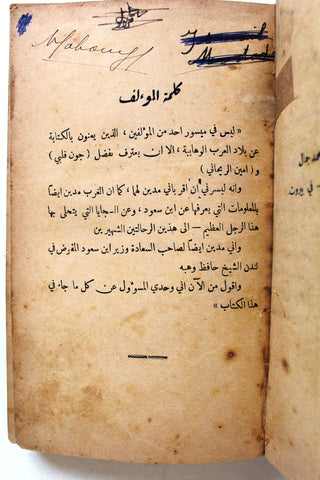 كلمة الموءلف
« ليس في ميسور احد من الموءلفين ، الذين يعنون بالكتابة
عن بلاد العرب الوهابية ، الا ان يعترف بفضل ( جون فلبي )
و ( امين الريحاني )
وانه ليسرني أن اقر باني مدين لهما كما ان الغرب مدين ايضاً
للمعلومات التي يعرفها عن ابن سعود ، وعن السجايا التي يتحلى بها
هذا الرجل العظيم — الى هذين الرحالتين الشهيرين
واني مدين ايضاً لصاحب السعادة وزير ابن سعود المفوض في
لندن الشيخ حافظ وهبه
واقول من الآن اني وحدي المسوءول عن كل ما جاء في
هذا الكتاب »
محمد جمال
في بيروت